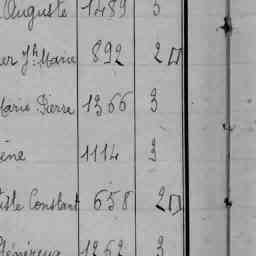 Auguste 1489 3
er Jh Marie 892 2
Marie Pierre 1366 3
ène 1114 3
iste Constant 658 2
Généreux 1262 3